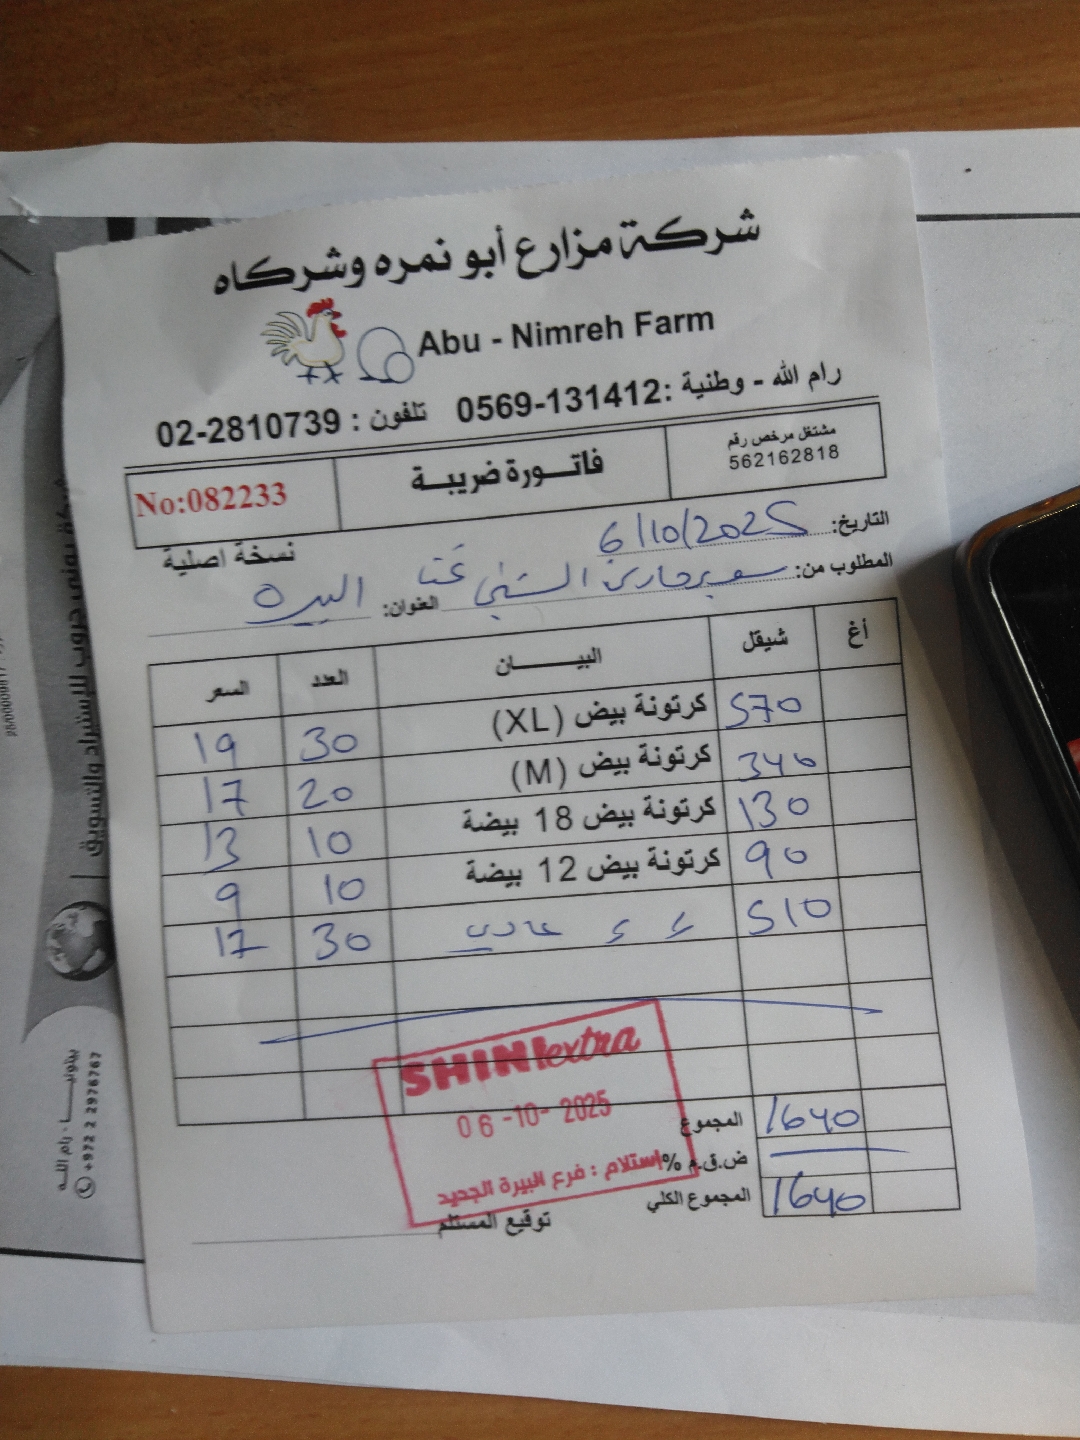 شركة مزارع أبو نمره وشركاه
Abu - Nimreh Farm
رام الله - وطنية :0569-131412 تلفون : 02-2810739
مشتغل مرخص رقم
562162818
فاتـــورة ضريبـــة
No:082233
نسخة اصلية
التاريخ: 6/10/2025
المطلوب من: سوبرماركت الشني العنوان: البيره
أغ شيقل البيـــــــان العدد السعر
570 كرتونة بيض (XL) 30 19
340 كرتونة بيض (M) 20 17
130 كرتونة بيض 18 بيضة 10 13
90 كرتونة بيض 12 بيضة 10 9
510 ء ء عادي 30 17
SHINI extra
06-10-2025
استلام : فرع البيرة الجديد
المجموع 1640
ض.ق.م %
المجموع الكلي 1640
توقيع المستلم
بيتونيـــا - رام اللـه
+972 2 2976767